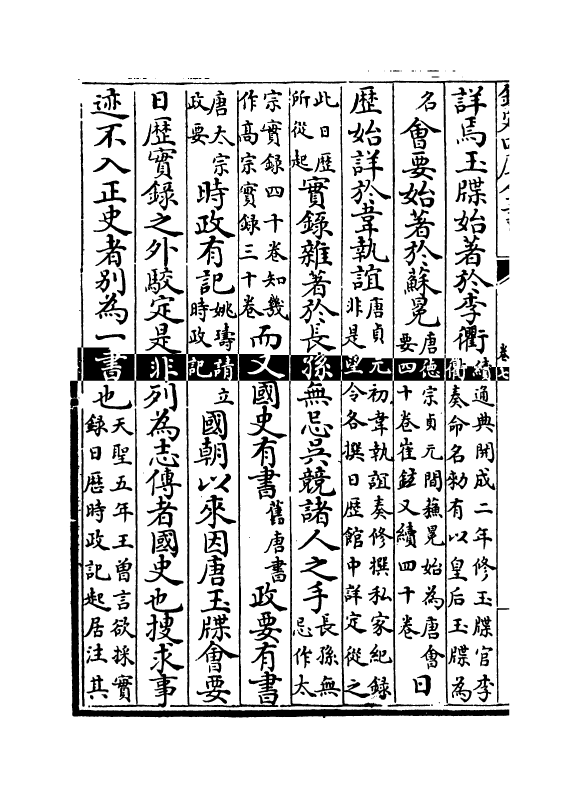 詳焉玉牒始著於李衢續通典開成二年修玉牒官李衢奏命名勅有以皇后玉牒為
名會要始著於蘇冕唐德宗貞元間蘓冕始為唐會要四十卷崔鉉又續四十卷日
歴始詳於韋執誼唐貞元初韋執誼奏修撰私家紀録非是望令各撰日歴館中詳定從之
此日歴所從起實録雜著於長孫無忌吳競諸人之手長孫無忌作太
宗實録四十卷知幾作髙宗實録三十卷而又國史有書舊唐書政要有書
唐太宗政要時政有記姚璹請立時政記國朝以來因唐玉牒會要
日歴實録之外駮定是非列為志傳者國史也搜求事
迹不入正史者别為一書也天聖五年王曽言欲採實録日厯時政記起居注其